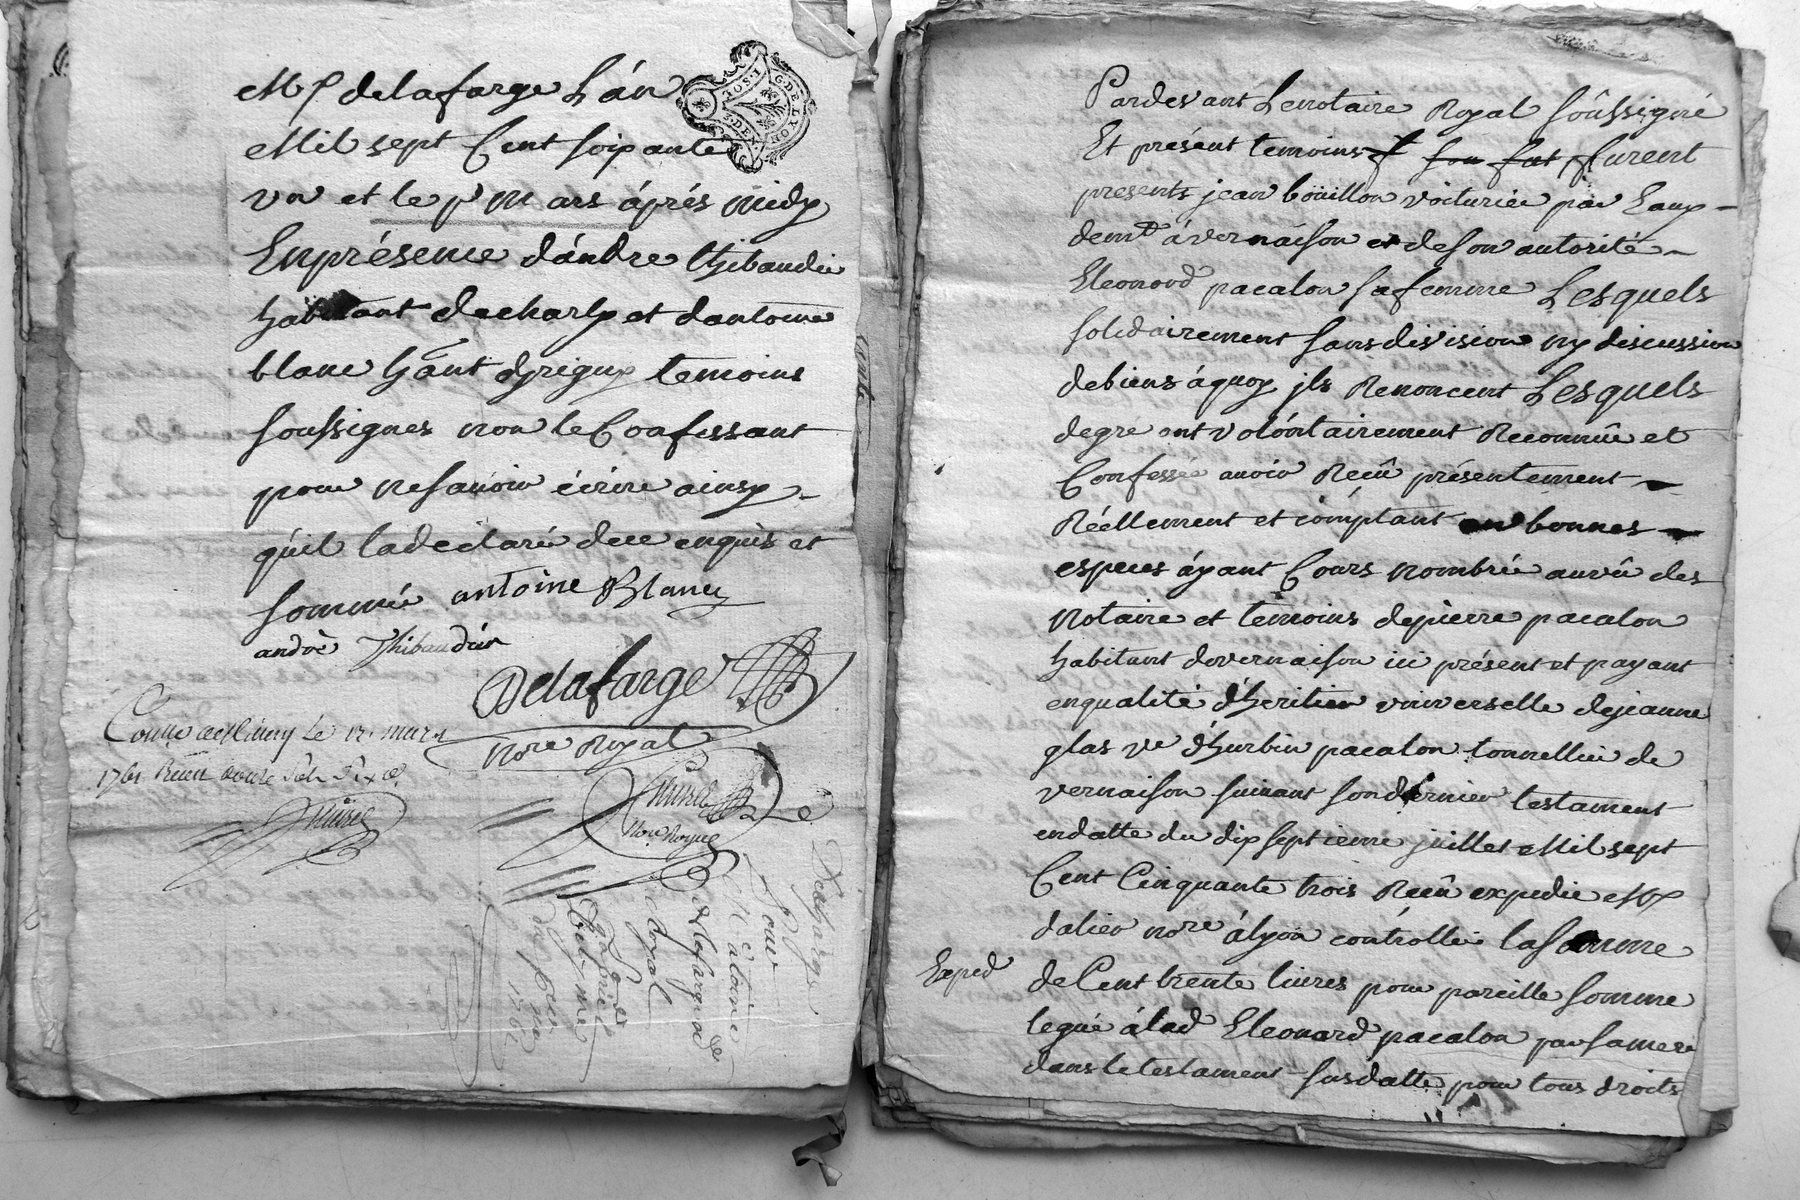 Me delafarge L'an
Mil sept Cent soixante
un et le pr Mars áprés midy
En présence d'ándre thibaudie
habitant decharly et dantoine
blanc hant dyrigny temoins
soussignes non le Confessant
pour nesavoir écrire ainsy
qu'il ladeclaré dece enquis et
sommé antoine Blanc
andré Thibaudie
Delafarge
Nore Royal
le mars
1761 Recu douze sols six d
Decharge
pour
Me
Royal
1761
G.DE LYON
Pardevant Lenotaire Royal soussigné
Et présent temoins furent
presents jean boüillon voiturier par Eaux
demt á vernaison et deson autorité
Eleonord pacalon safemme Lesquels
solidairement sans division ny discussion
debiens áquoy jls Renoncent Lesquels
degré ont volóntairement Reconnû et
Confessé avoir Reçû présentement
Réellement et comptant en bonnes
especes áyant Cours nombréé auvû des
Notaire et temoins depierre pacalon
habitant dovernaison ici présent et payant
enqualité d'heritier universelle dejeanne
glas ve d'hurbin pacalon tonnellier de
vernaison suivant sondernier testament
endatte du dix septieme juillet Mil sept
Cent Cinquante trois Reçû expedie Me
dalier nore ályon contróllé la somme
Exped
deCent trente livres pour pareille somme
legué álad Eleonard pacalon par samere
dans le testament susdatté pour tous droits